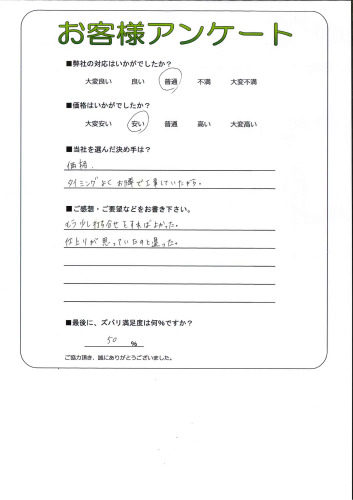 お客様アンケート
■弊社の対応はいかがでしたか？
大変良い 良い 普通 不満 大変不満
■価格はいかがでしたか？
大変安い 安い 普通 高い 大変高い
■当社を選んだ決め手は？
価格.
タイミングよくお隣で工事していたから。
■ご感想・ご要望などをお書き下さい。
もう少し打ち合せをすればよかった。
仕上りが思っていたのと違った。
■最後に、ズバリ満足度は何%ですか？
50 %
ご協力頂き、誠にありがとうございました。